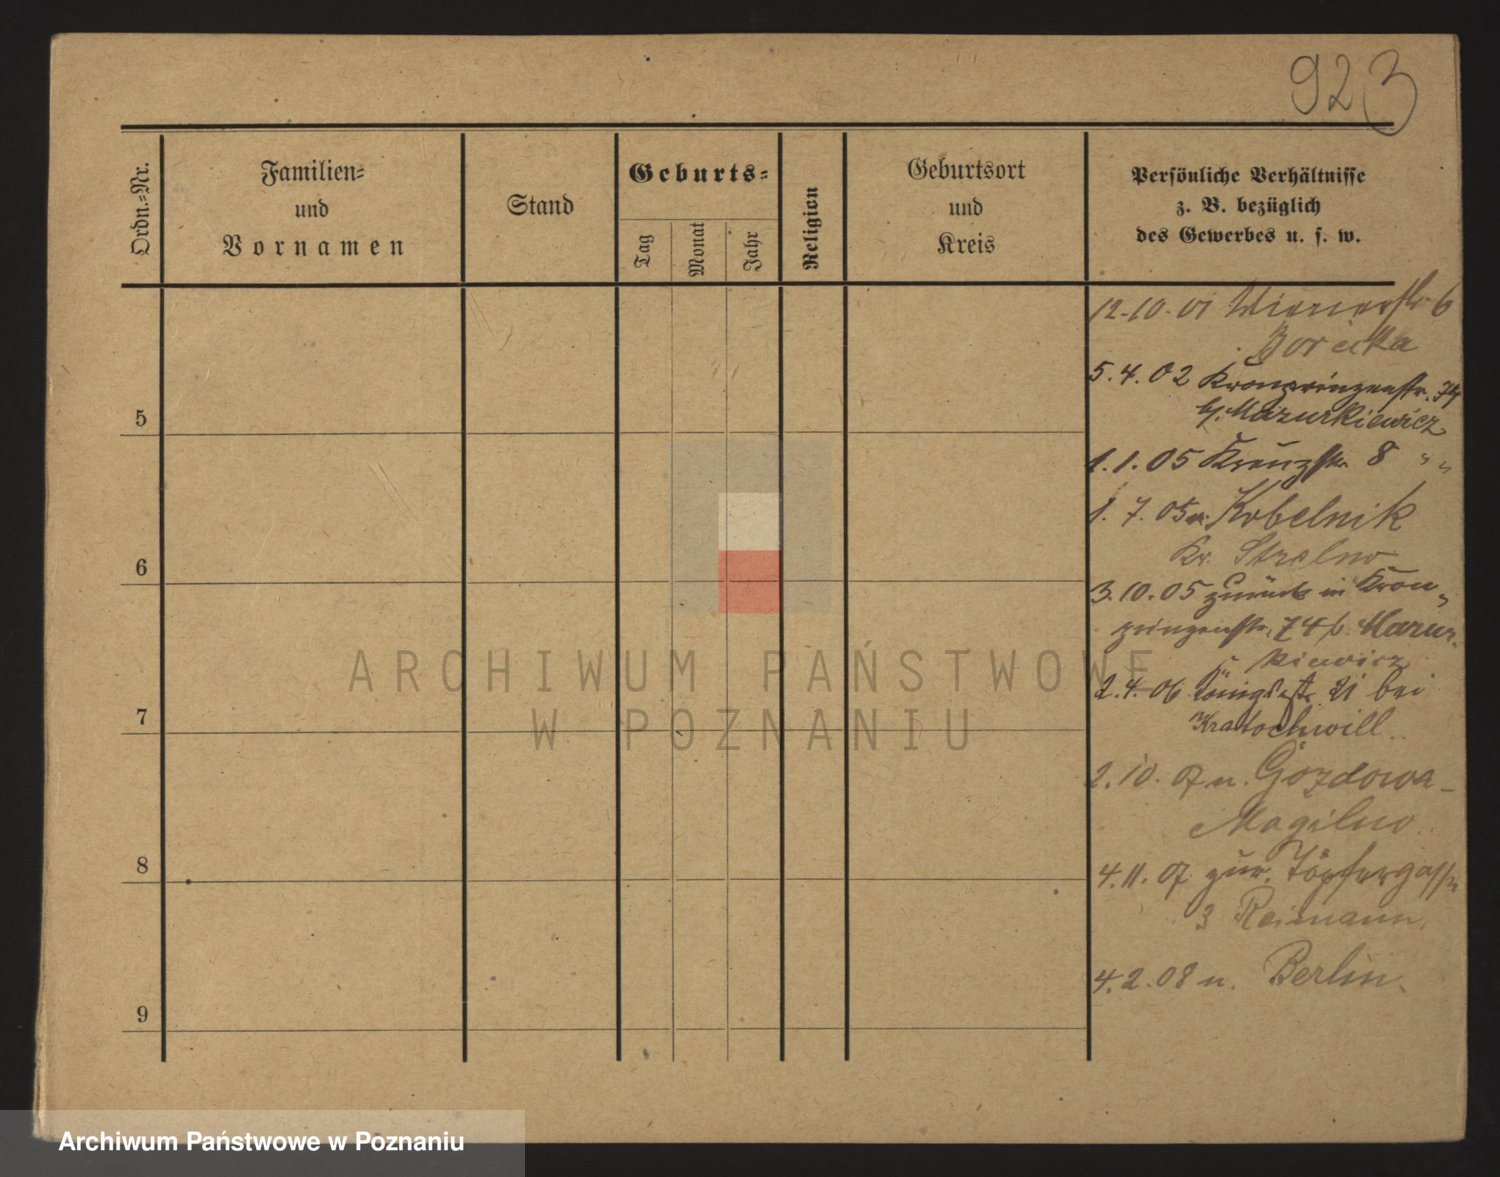 923
Ordn.-Nr.
Familien-
und
Vornamen
Stand
Geburts-
Tag
Monat
Jahr
Religion
Geburtsort
und
Kreis
Persönliche Verhältnisse
z. B. bezüglich
des Gewerbes u. s. w.
12.10.01 Wienerstr 6
5.4.02 Kronprinzenstr. 74
b/. Mazurkiewicz
5
1.1.05 Kreuzstr 8 " "
1.7.05 n. Kobelnik
Kr. Strelno
6
3.10.05 zurück in Kron-
prinzenstr. 74 b. Mazur-
kiewicz
2.4.06 Königstr. 21 bei
Kratochwill.
7
2.10.07 n. Gozdowa-
Mogilno.
8
4.11.07 zur. Töpfergasse
3 Reimann.
4.2.08 n. Berlin.
9
ARCHIWUM PAŃSTWOWE
W POZNANIU
Archiwum Państwowe w Poznaniu